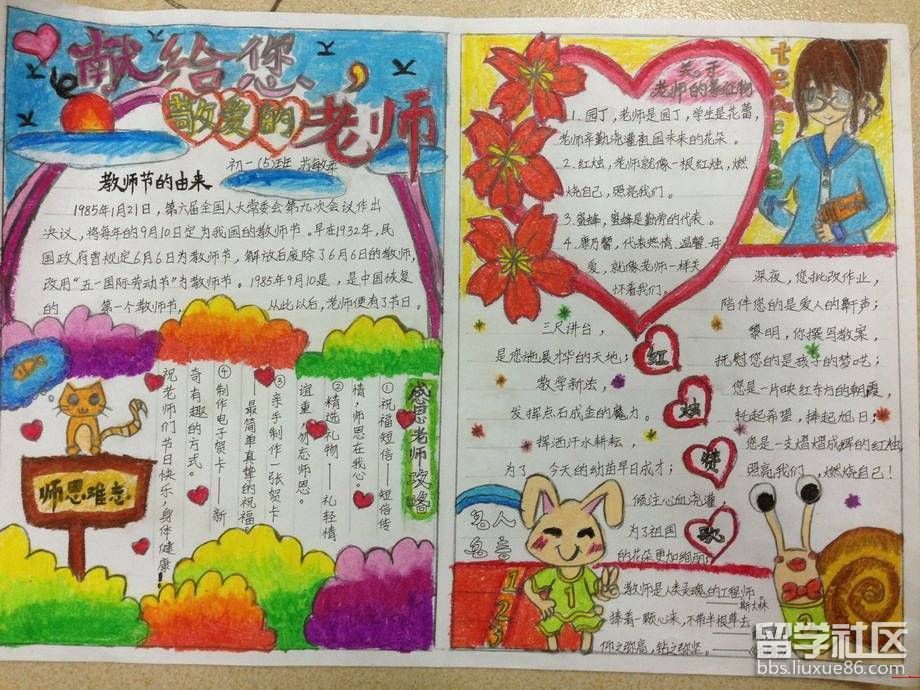 献给您、
敬爱的老师
初一(5)班
教师节的由来
1985年1月21日，第六届全国人大常委会第九次会议作出
决议，将每年的9月10日定为我国的教师节。早在1932年，民
国政府曾规定6月6日为教师节，解放后废除了6月6日的教师
改用"五一国际劳动节"为教师节。1985年9月10是，是中国恢复
的 第一个教师节， 从此以后，老师便有了节日。
感恩老师攻略
①祝福短信——短信传
情，师恩在我心。
②精选礼物——礼轻情
谊重，勿忘师恩。
③亲手制作一张贺卡
——最简单真挚的祝福
④制作电子贺卡——新
奇有趣的方式。
祝老师们节日快乐、身体健康！
师恩难忘
关于
老师的象征物
1. 园丁，老师是园丁，学生是花蕾，
老师辛勤浇灌祖国未来的花朵。
2. 红烛，老师就像一根红烛，燃
烧自己，照亮我们。
3. 蜜蜂，蜜蜂是勤劳的代表。
4. 康乃馨，代表热情、温馨、母
爱，就像老师一样关
怀着我们。
teache
红烛赞歌
三尺讲台，
是您施展才华的天地；
教学新法，
发挥点石成金的魔力。
挥洒汗水耕耘，
为了 今天的幼苗早日成才；
倾注心血浇灌，
为了祖国
的花朵更加绚丽；
深夜，您批改作业，
陪伴您的是爱人的鼾声；
黎明，你撰写教案，
抚慰您的是孩子的梦呓；
您是一片映红东方的朝霞，
托起希望，捧起旭日；
您是一支熠熠成辉的红烛，
照亮我们，燃烧自己！
名人
名言
1
2
3
1
2
教师是人类灵魂的工程师。
——斯大林
捧着一颗心来，不带半根草去
仰之弥高，钻之弥坚。
留学社区
bbs.liuxue86.com